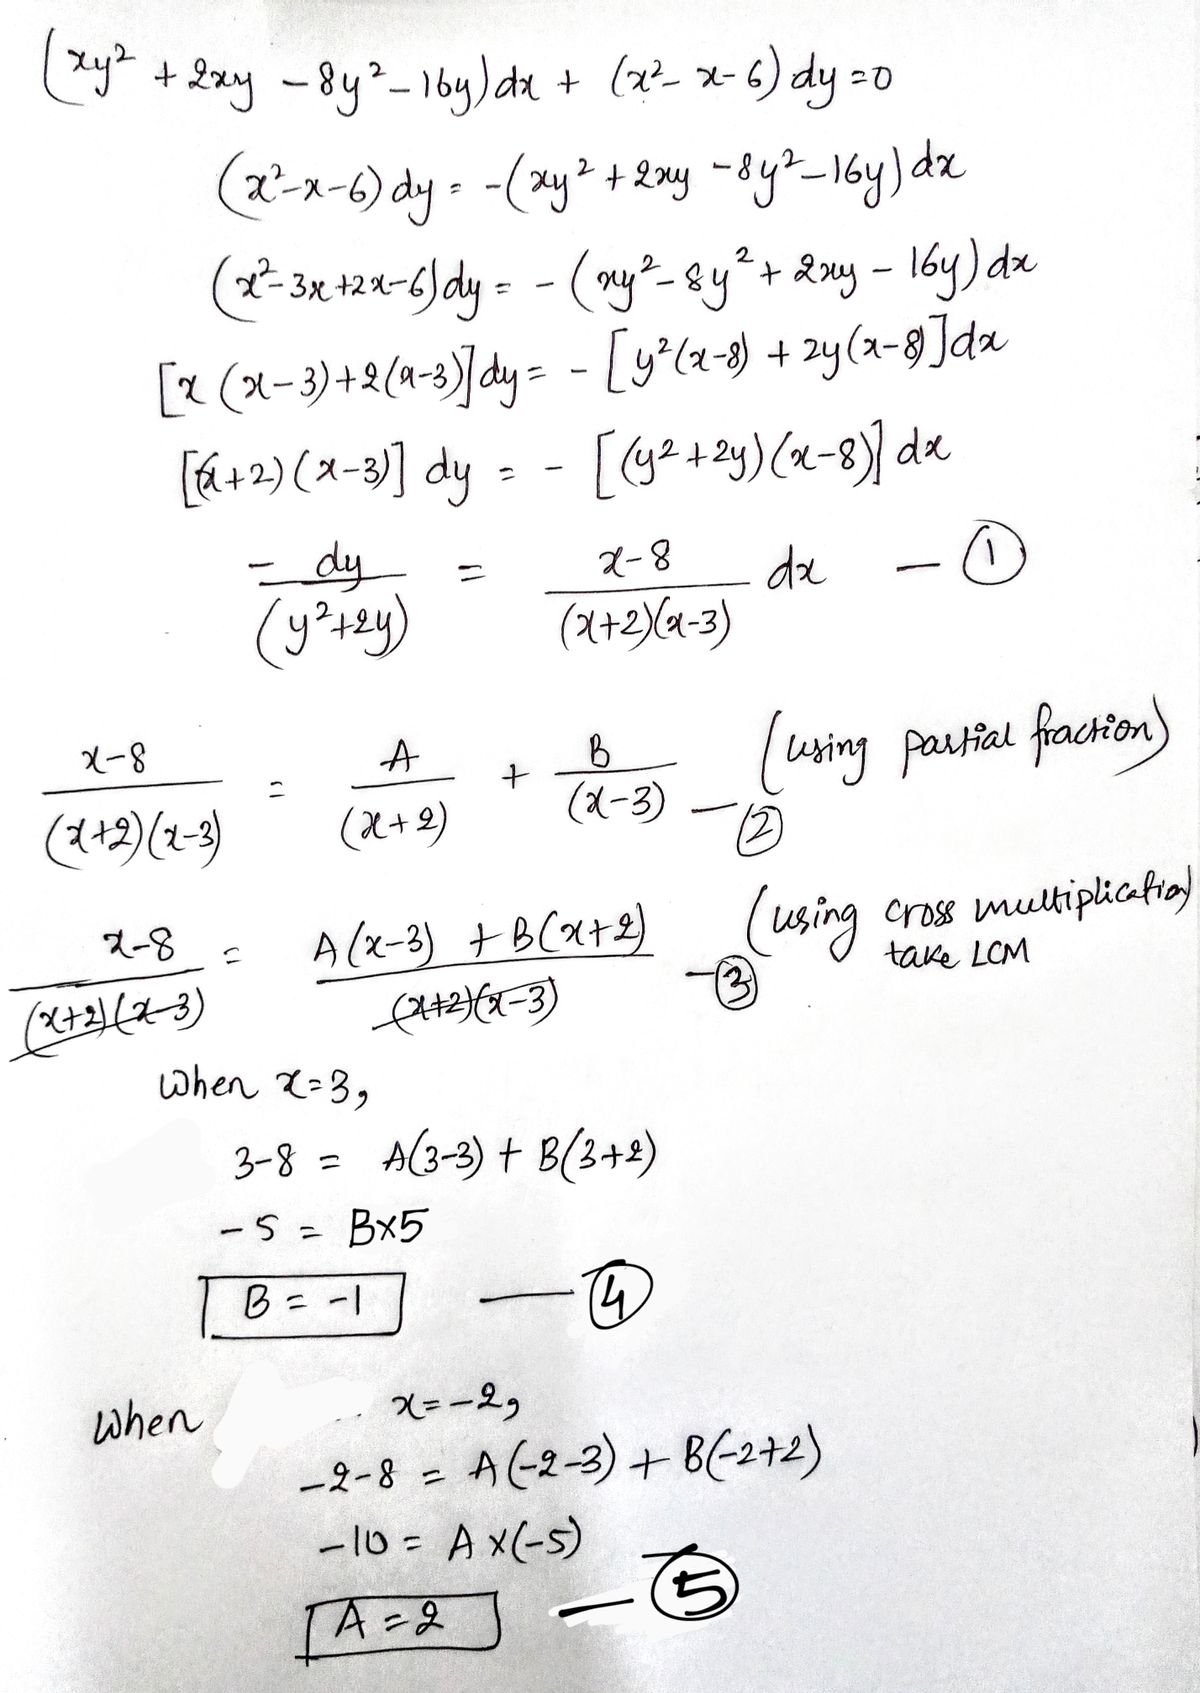 (xy² + 2xy - 8y² - 16y) dx + (x² - x - 6) dy = 0
(x² - x - 6) dy = -(xy² + 2xy - 8y² - 16y) dx
(x² - 3x + 2x - 6) dy = - (xy² - 8y² + 2xy - 16y) dx
[x (x - 3) + 2(x - 3)] dy = - [y²(x-8) + 2y(x-8)] dx
[(x+2) (x-3)] dy = - [(y² + 2y) (x-8)] dx
- dy / (y² + 2y) = x-8 / (x+2)(x-3) dx — ①
x-8 / (x+2)(x-3) = A / (x+2) + B / (x-3) — ② (using partial fraction)
x-8 / (x+2)(x-3) = A(x-3) + B(x+2) / (x+2)(x-3) — ③ (using cross multiplication) take LCM
When x=3,
3-8 = A(3-3) + B(3+2)
-5 = B×5
B = -1 — ④
When x = -2,
-2-8 = A(-2-3) + B(-2+2)
-10 = A×(-5)
A = 2 — ⑤